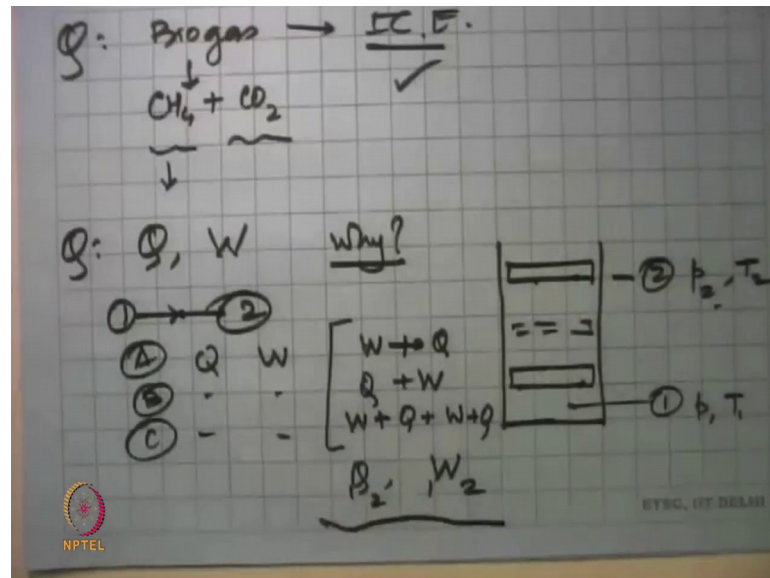 Q: Biogas → I.C.E.
↓ ✓
CH4 + CO2
↓
Q: Q, W Why?
① → ② 
Ⓐ Q W
Ⓑ - -
Ⓒ - -
W + Q
Q + W
W + Q + W + Q
Q2, W2
② p2, T2
① p, T1
ETSC, IIT DELHI
NPTEL